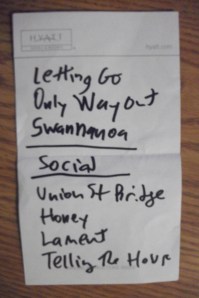 Letting Go
Only Way Out
Swannanoa
Social
Union St Bridge
Honey
Lament
Telling The Hour